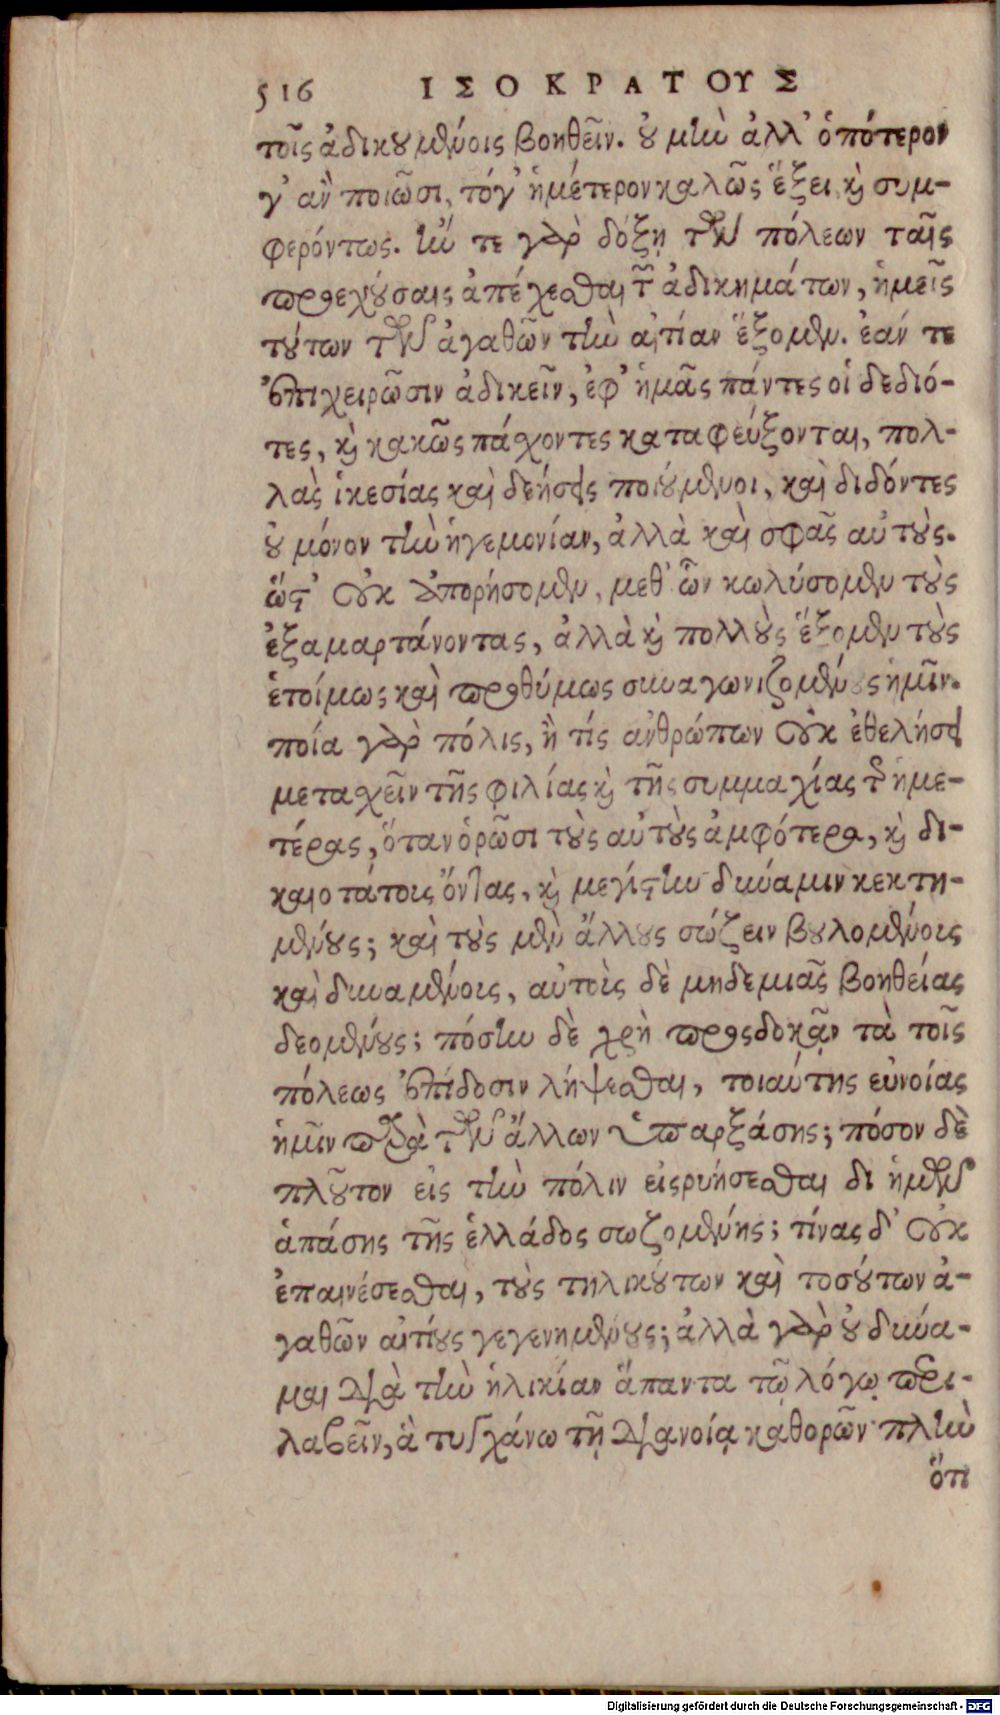 516 ΙΣΟΚΡΑΤΟΥΣ
τοῖς ἀδικουμένοις βοηθεῖν. οὐ μὴν ἀλλ' ὁπότερον
γ' ἂν ποιῶσι, τόγ' ἡμέτερον καλῶς ἕξει, καὶ συμ-
φερόντως. ἤν τε γὰρ δόξῃ τῶν πόλεων ταῖς
προεχούσαις ἀπέχεσθαι τῶν ἀδικημάτων, ἡμεῖς
τούτων τῶν ἀγαθῶν τὴν αἰτίαν ἕξομεν. ἐάν τε
ἐπιχειρῶσιν ἀδικεῖν, ἐφ' ἡμᾶς πάντες οἱ δεδιό-
τες, καὶ κακῶς πάσχοντες καταφεύξονται, πολ-
λὰς ἱκεσίας καὶ δεήσεις ποιούμενοι, καὶ διδόντες
οὐ μόνον τὴν ἡγεμονίαν, ἀλλὰ καὶ σφᾶς αὐτούς.
ὥστ' οὐκ ἀπορήσομεν, μεθ' ὧν κωλύσομεν τοὺς
ἐξαμαρτάνοντας, ἀλλὰ καὶ πολλοὺς ἕξομεν τοὺς
ἑτοίμως καὶ προθύμως συναγωνιζομένους ἡμῖν.
ποία γὰρ πόλις, ἢ τίς ἀνθρώπων οὐκ ἐθελήσει
μετασχεῖν τῆς φιλίας καὶ τῆς συμμαχίας τῆς ἡμε-
τέρας, ὅταν ὁρῶσι τοὺς αὐτοὺς ἀμφότερα, καὶ δι-
καιοτάτους ὄντας, καὶ μεγίστην δύναμιν κεκτη-
μένους; καὶ τοὺς μὲν ἄλλους σώζειν βουλομένους
καὶ δυναμένους, αὐτοὺς δὲ μηδεμιᾶς βοηθείας
δεομένους; πόσην δὲ χρὴ προσδοκᾶν τὰ τοῖς
πόλεως ἐπίδοσιν λήψεσθαι, τοιαύτης εὐνοίας
ἡμῖν παρὰ τῶν ἄλλων ὑπαρξάσης; πόσον δὲ
πλοῦτον εἰς τὴν πόλιν εἰσρυήσεσθαι δι ἡμῶν
ἁπάσης τῆς ἑλλάδος σωζομένης; τίνας δ' οὐκ
ἐπαινέσεσθαι, τοὺς τηλικούτων καὶ τοσούτων ἀ-
γαθῶν αἰτίους γεγενημένους; ἀλλὰ γὰρ οὐ δύνα-
μαι διὰ τὴν ἡλικίαν ἅπαντα τῷ λόγῳ περι-
λαβεῖν, ἃ τυγχάνω τῇ διανοίᾳ καθορῶν πλὴν
ὅτι
Digitalisierung gefördert durch die Deutsche Forschungsgemeinschaft - DFG